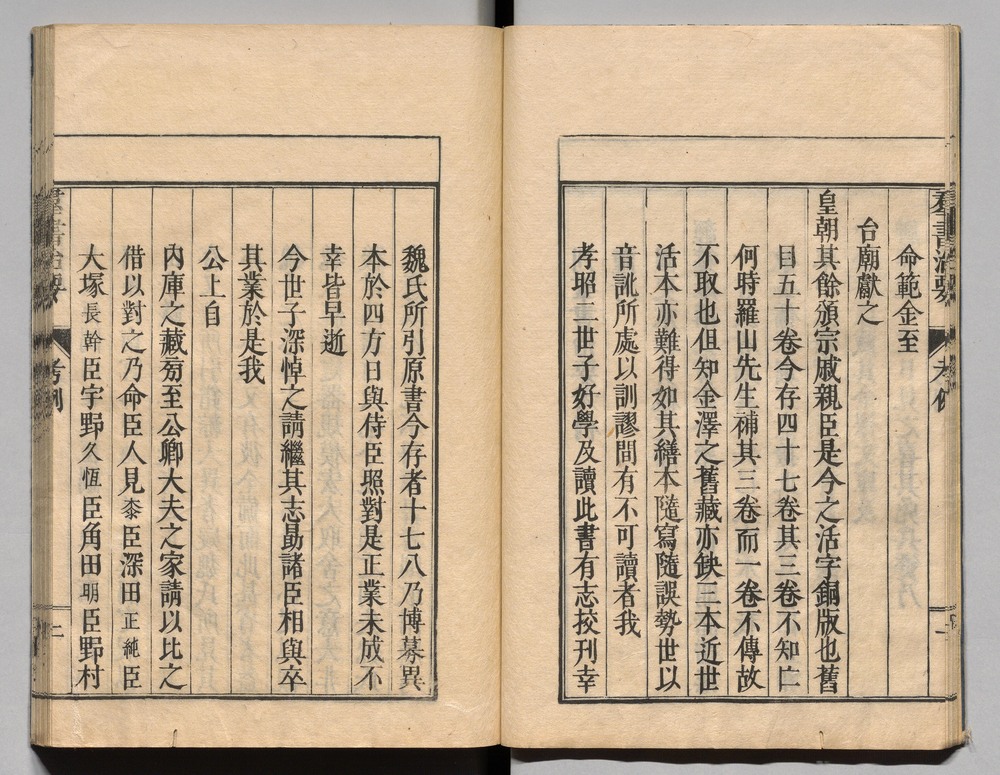 命範金至
台廟獻之
皇朝其餘頒宗戚親臣是今之活字銅版也舊
目五十卷今存四十七卷其三卷不知亡
何時羅山先生補其三卷而一卷不傳故
不取也但知金澤之舊藏亦缺三本近世
活本亦難得如其繕本隨寫隨誤勢世以
音訛所處以訓謬間有不可讀者我
孝昭二世子好學及讀此書有志挍刊幸
羣書治要
考例
一
魏氏所引原書今存者十七八乃博募異
本於四方日與侍臣照對是正業未成不
幸皆早逝
今世子深悼之請繼其志勗諸臣相與卒
其業於是我
公上自
內庫之藏旁至公卿大夫之家請以比之
借以對之乃命臣人見桼臣深田正純臣
大塚長幹臣宇野久恆臣角田明臣野村
羣書治要
考例
二